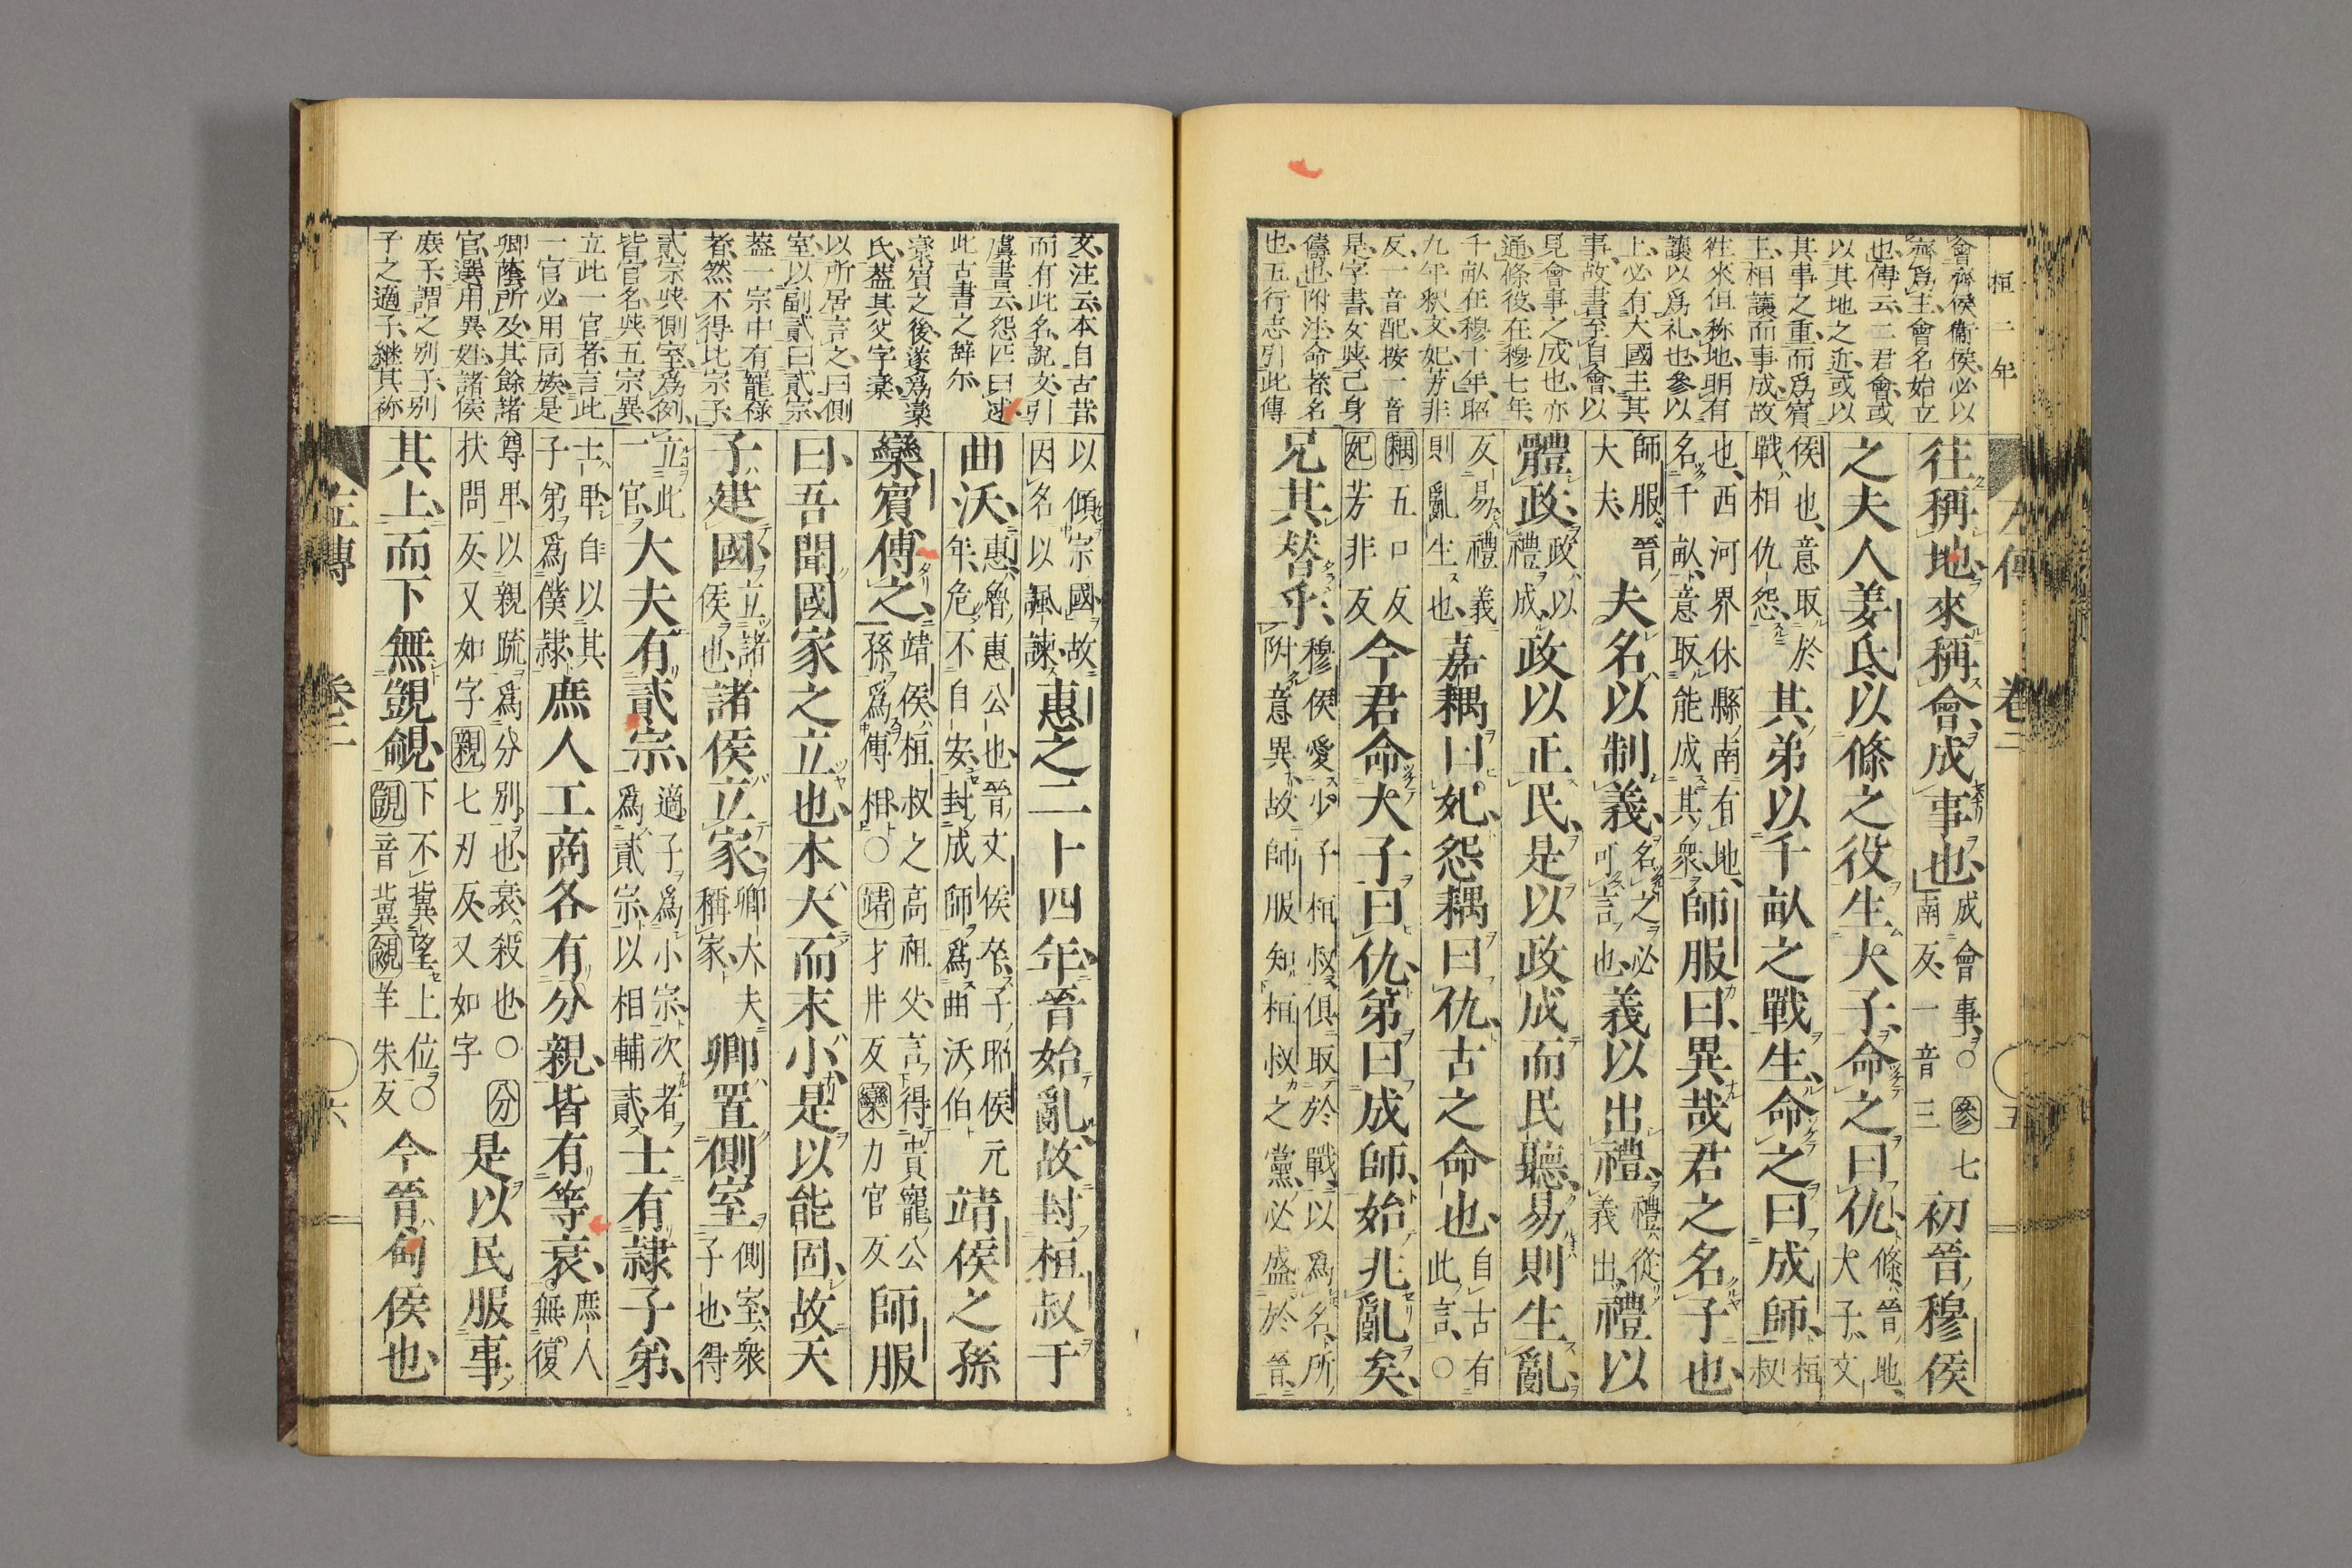 桓二年
會齊侯衞侯必以
齊爲主會名始立
也傳云二君會或
以其地之近或以
其事之重而爲賓
主相讓而事成故
徃來但称地明有
讓以爲礼也參以
上必有大國主其
事故書至自會以
見會事之成也亦
通條役在穆七年
千畝在穆十年昭
九年釈文妃芳非
反一音配按一音
是字書女與己身
儔也附注命者名
也五行志引此傳
左傳 卷二 五
往稱地來稱會成事也成會事○參七
南反一音三
初晉穆侯
之夫人姜氏以條之役生大子命之曰仇條晉地
大子文
侯也意取於
戰相仇怨
其弟以千畝之戰生命之曰成師桓
叔
也西河界休縣南有地
名千畝意取能成其衆
師服曰異哉君之名子也
師服晉
大夫
夫名以制義名之必
可言也
義以出禮禮從
義出
禮以
體政政以
禮成
政以正民是以政成而民聽易則生亂
反易禮義
則亂生也
嘉耦曰妃怨耦曰仇古之命也自古有
此言○
耦五口反
妃芳非反
今君命大子曰仇弟曰成師始兆亂矣
兄其替乎穆侯愛少子桓叔俱取於戰以爲名所
附意異故師服知桓叔之黨必盛於晉
文注云本自古昔
而有此名說文引
虞書云怨匹曰逑
此古書之辭尓
欒賓之後遂爲欒
氏蓋其父字欒
以所居言之曰側
室以副貳曰貳宗
蓋一宗中有寵祿
者然不得比宗子
貳宗與側室爲例
皆官名與五宗異
立此一官者言此
一官必用同族是
卿蔭所及其餘諸
官選用異姓諸侯
庶子謂之別子別
子之適子継其祢
以傾宗國故
因名以諷諫
惠之二十四年晉始亂故封桓叔于
曲沃惠魯惠公也晉文侯卒子昭侯元
年危不自安封成師爲曲沃伯
靖侯之孫
欒賓傅之靖侯桓叔之高祖父言得貴寵公
孫爲傅相○靖才井反欒力官反
師服
曰吾聞國家之立也本大而末小是以能固故天
子建國立諸
侯也
諸侯立家卿大夫
稱家
卿置側室側室衆
子也得
立此
一官
大夫有貳宗適子爲小宗次者
爲貳宗以相輔貳
士有隸子弟
士卑自以其
子弟爲僕隷
庶人工商各有分親皆有等衰庶人
無復
尊卑以親疏爲分別也衰殺也○分
扶問反又如字親七刃反又如字
是以民服事
其上而下無覬覦下不冀望上位○
覬音冀覦羊朱反
今晉甸侯也
左傳 卷二 六